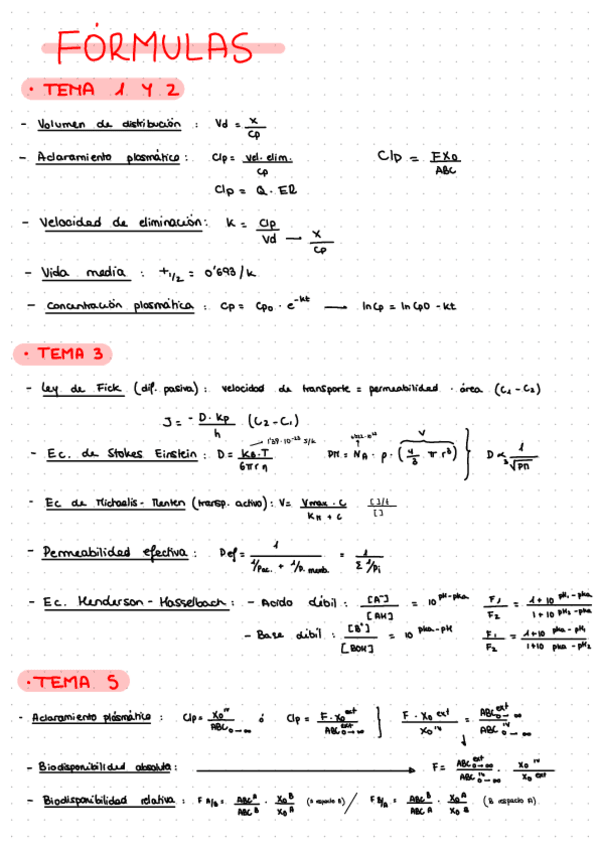 FÓRMULAS
· TEMA 1 Y 2
- Volumen de distribución : Vd = X / Cp
- Aclaramiento plasmático : Clp = vel. elim. / Cp    Clp = FX0 / ABC
Clp = Q · ER
- Velocidad de eliminación : K = Clp / Vd → X / Cp
- Vida media : t1/2 = 0'693 / K
- Concentración plasmática : Cp = Cp0 · e^-kt → lnCp = lnCp0 - kt
· TEMA 3
- Ley de Fick (dif. pasiva) : velocidad de transporte = permeabilidad · área (C1 - C2)
J = - D · Kp / h (C2 - C1)
- Ec. de Stokes Einstein : D = KB · T / 6πrη    PM = NA · ρ · (4/3 π r³)    D ∝ 1 / ³√PM
V
- Ec de Michaelis - Menten (transp. activo) : V = Vmax · C / KM + C    [ ]/t / [ ]
- Permeabilidad efectiva : Pef = 1 / 1/Pac. + 1/P. memb. = 1 / Σ 1/Pi
- Ec. Henderson - Hasselbach : - Acido débil : [A-] / [AH] = 10^pH-pka    F1 / F2 = 1 + 10^pH1-pka / 1 + 10^pH2-pka
- Base débil : [B+] / [BOH] = 10^pka-pH    F1 / F2 = 1 + 10^pka-pH1 / 1 + 10^pka-pH2
· TEMA 5
- Aclaramiento plásmático : Clp = X0^iv / ABC0→∞ ó Clp = F · X0^ext / ABC0→∞^ext } F · X0^ext / X0^iv = ABC0→∞^ext / ABC0→∞^iv
- Biodisponibilidad absoluta : → F = ABC0→∞^ext / ABC0→∞^iv · X0^iv / X0^ext
- Biodisponibilidad relativa : F A/B = ABC^A / ABC^B · X0^B / X0^A (A respecto B) / F B/A = ABC^B / ABC^A · X0^A / X0^B (B respecto A)